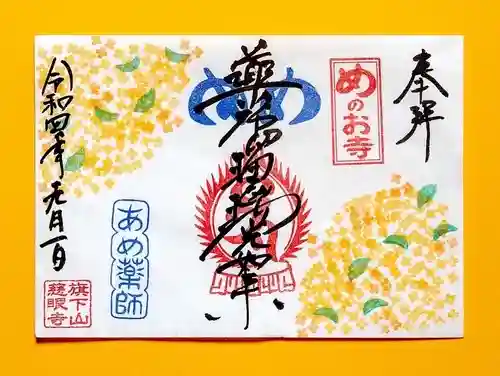 奉拝
めのお寺
薬師瑠璃光如来
め
あめ薬師
令和四年元月一日
旗下山
慈眼寺